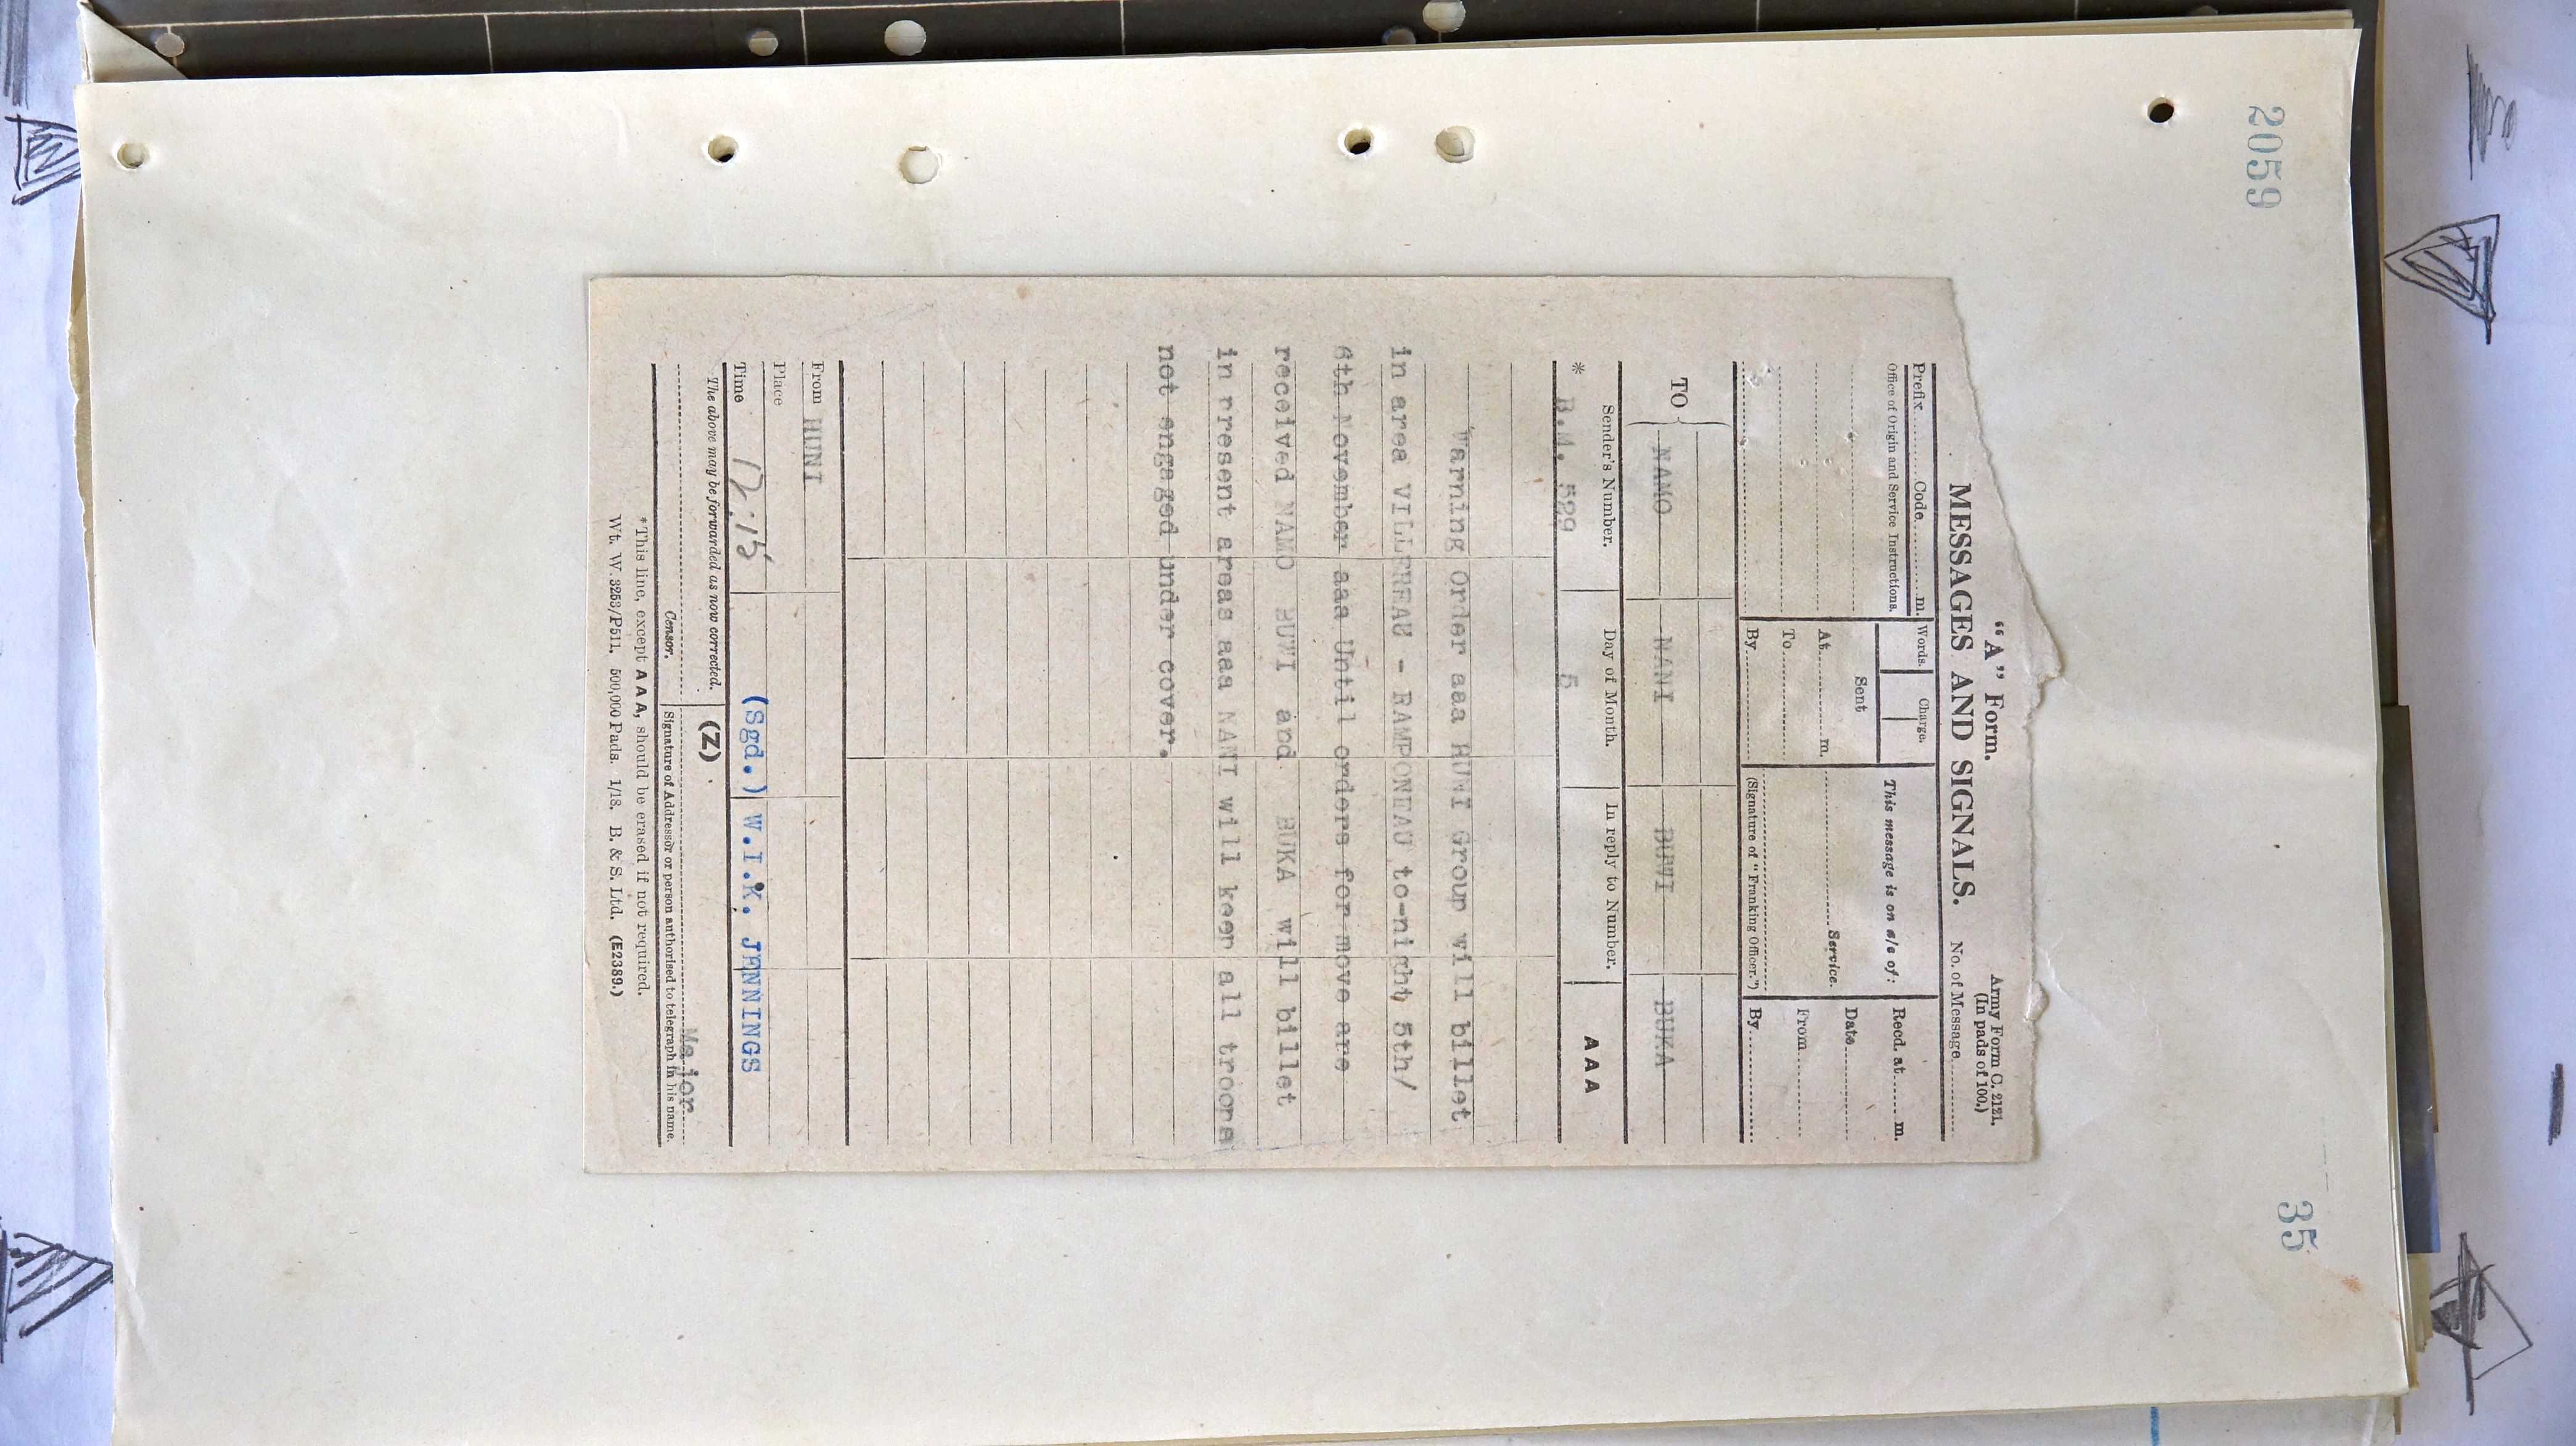 2059
35
"A" Form.
Army Form C. 2121.
(In pads of 100.)
MESSAGES AND SIGNALS.
No. of Message
Prefix Code m.
Words. Charge.
This message is on a/c of:
Recd. at m.
Office of Origin and Service Instructions.
Sent
Date
At m.
Service.
From
To
By
(Signature of "Franking Officer.")
By
TO
NAMO NANI BUWI BUKA
Sender's Number. Day of Month. In reply to Number. A A A
* B.M. 529 5
Warning Order aaa HUNI Group will billet
in area VILLEREAU - RAMPONEAU to-night, 5th/
6th November aaa Until orders for move are
received NAMO BUWI and BUKA will billet
in present areas aaa NANI will keep all troops
not engaged under cover.
From HUNI
Place
Time 12.15
(Sgd.) W.I.K. JENNINGS
The above may be forwarded as now corrected. (Z)
Major
Censor. Signature of Addressor or person authorised to telegraph in his name.
*This line, except A A A, should be erased if not required.
Wt. W.3253/P511. 500,000 Pads. 1/18. B. & S. Ltd. (E2389.)